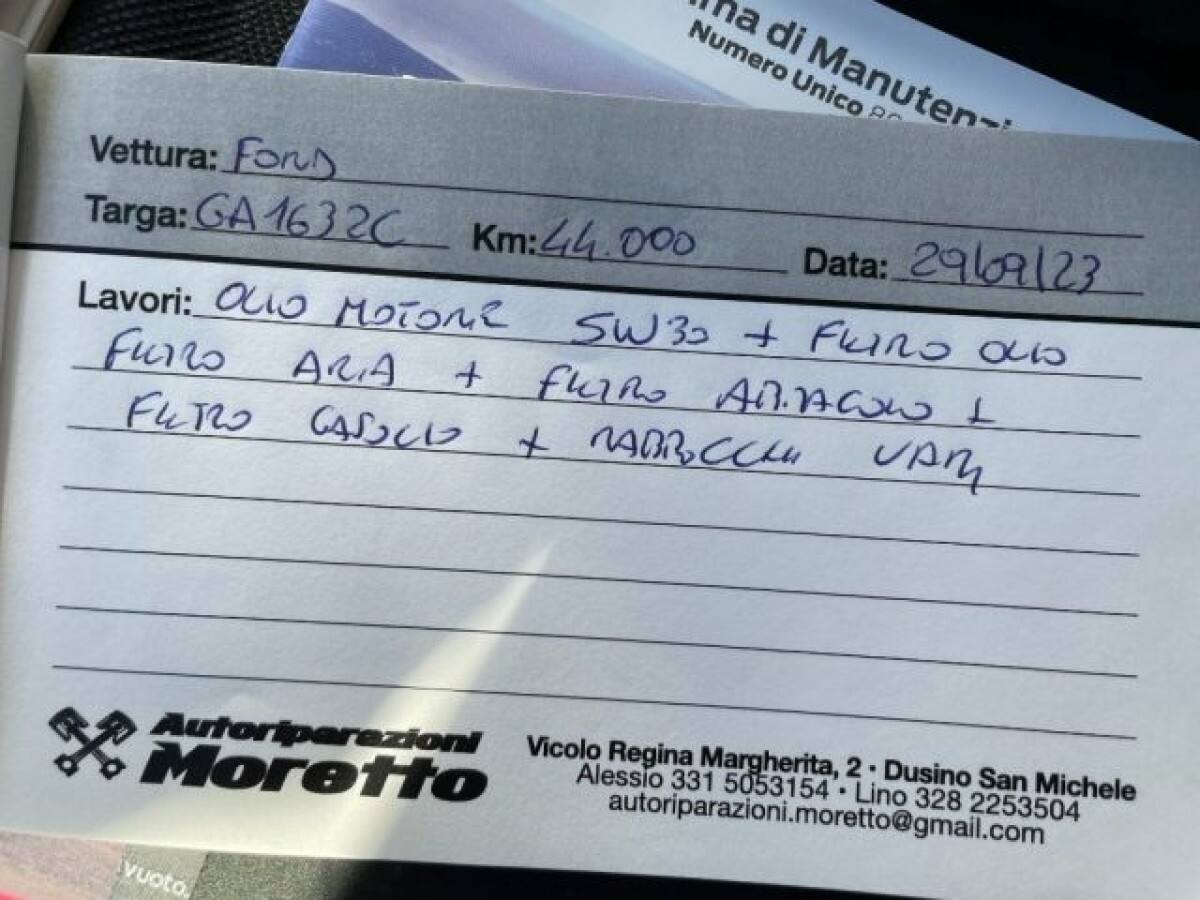 ma di Manutenzi
Numero Unico 80
Vettura: FORD
Targa: GA163ZC Km: 44.000 Data: 29/09/23
Lavori: OLIO MOTORE 5W30 + FILTRO OLIO
FILTRO ARIA + FILTRO ABITACOLO +
FILTRO GASOLIO + RABBOCCHI VARI
Autoriparazioni
Moretto
Vicolo Regina Margherita, 2 · Dusino San Michele
Alessio 331 5053154 · Lino 328 2253504
autoriparazioni.moretto@gmail.com
vuoto.